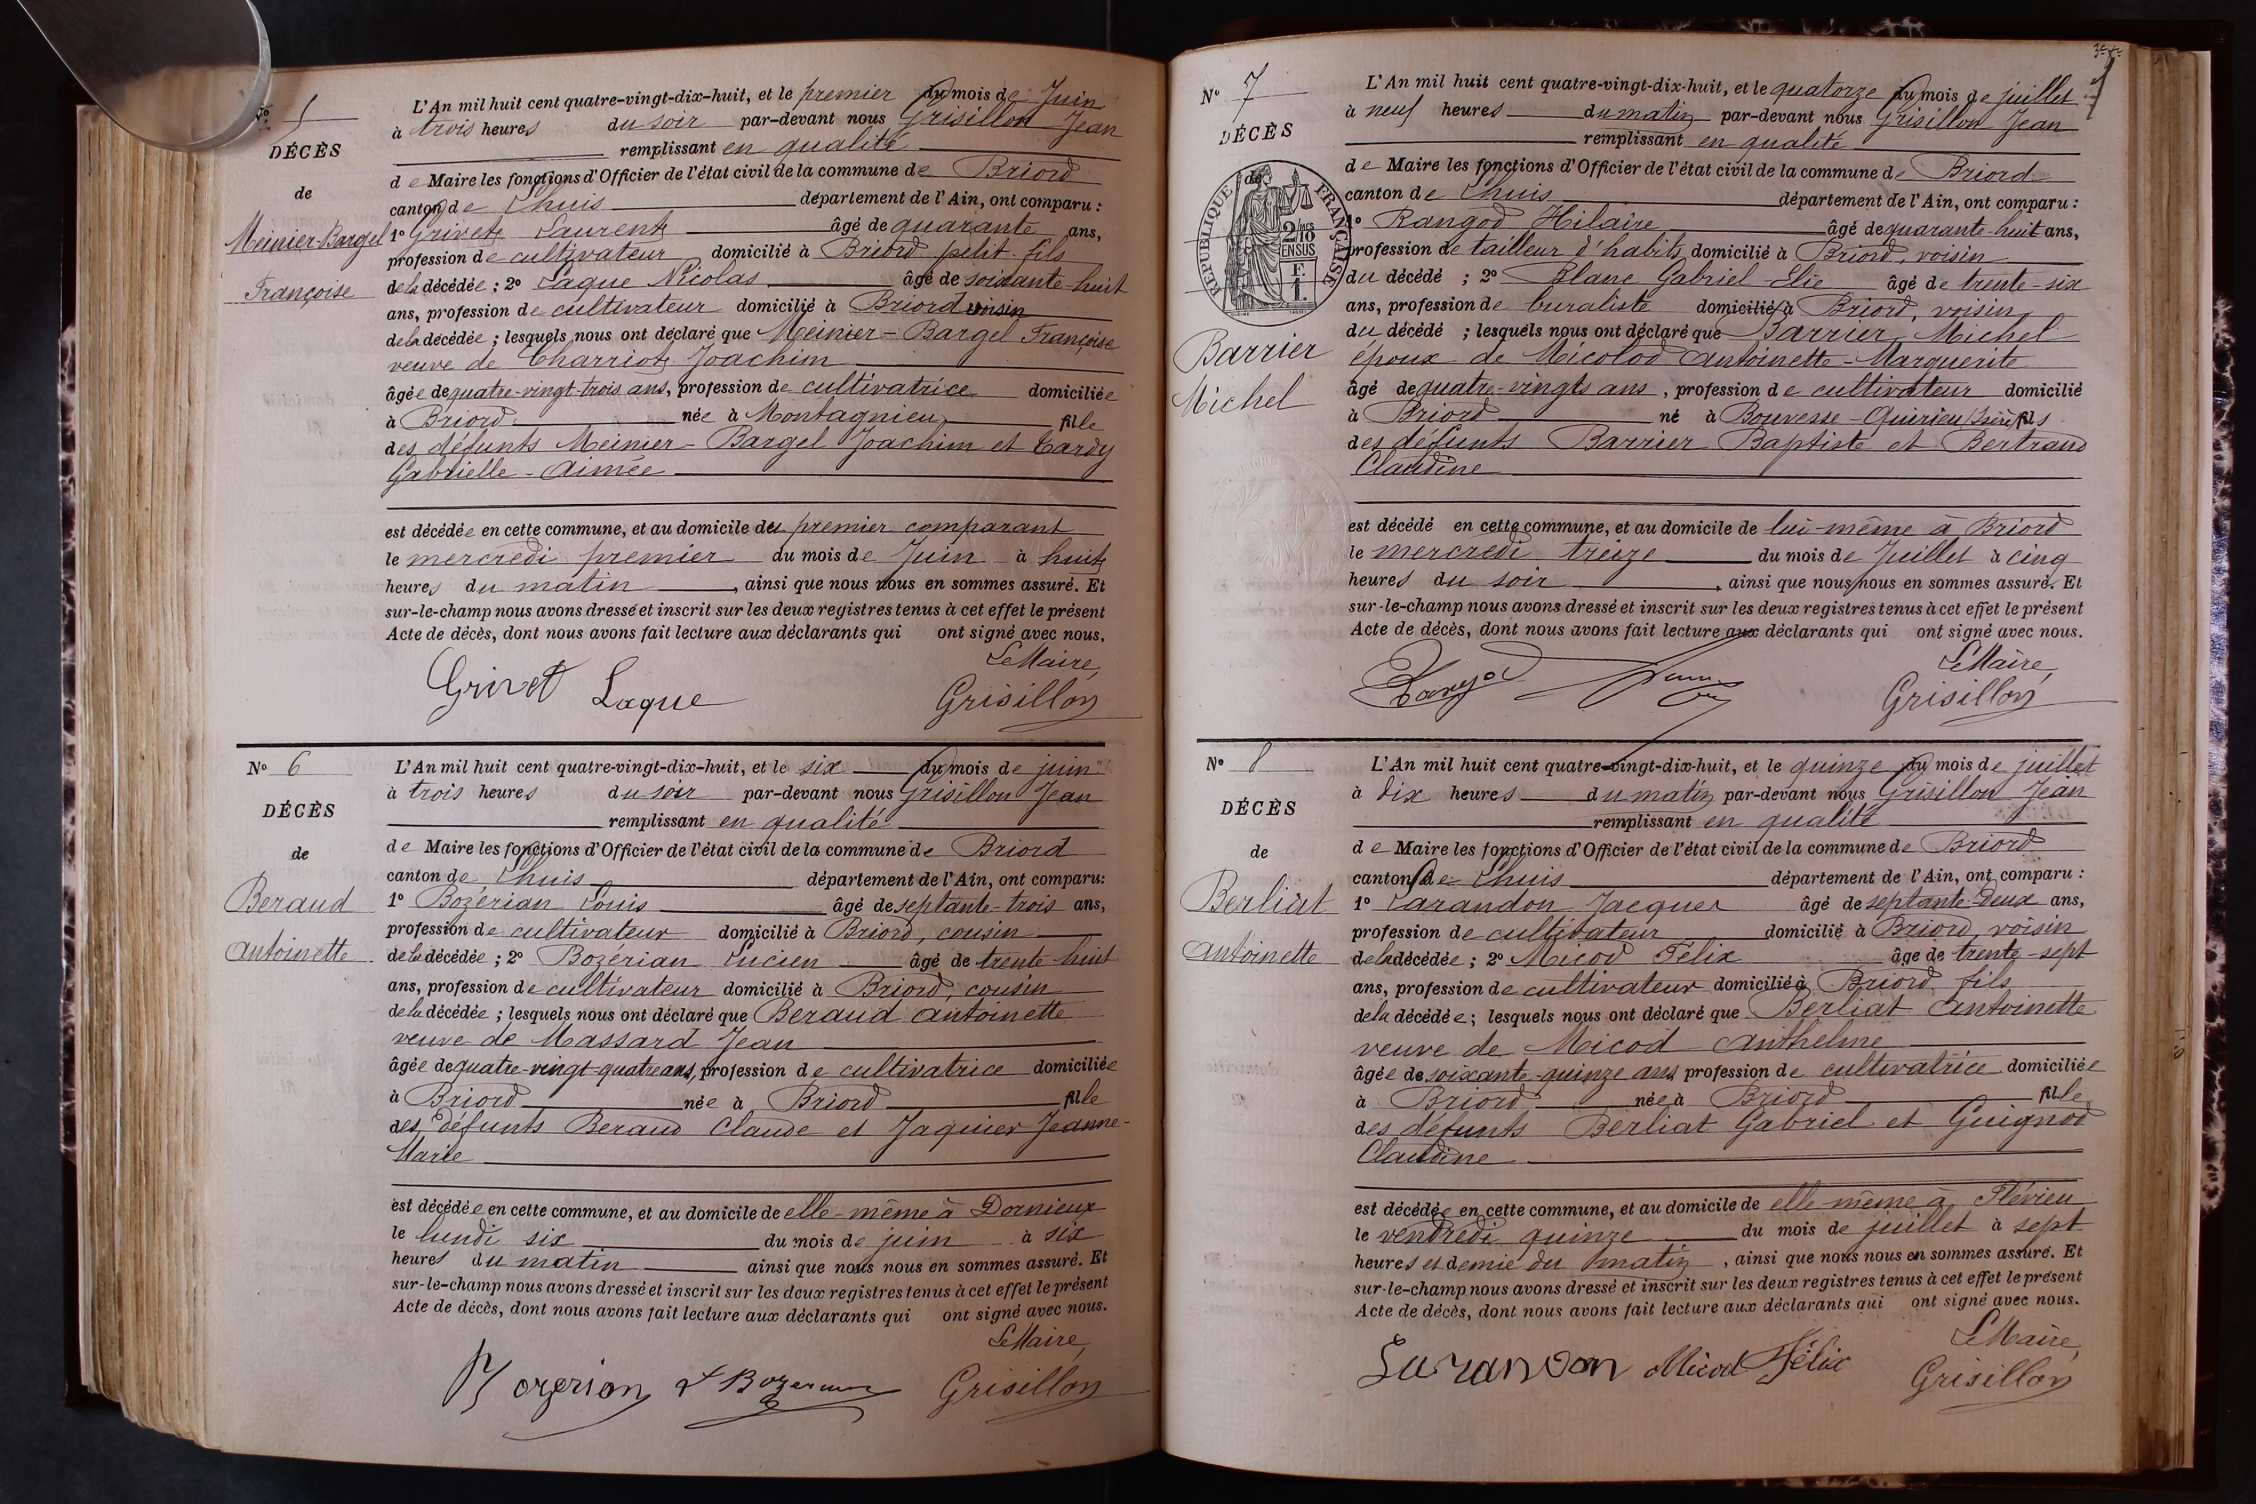 N° 5
DÉCÈS
de
Meinier-Bargel
Françoise
L'An mil huit cent quatre-vingt-dix-huit, et le premier du mois de Juin
à trois heures du soir par-devant nous Grisillon Jean
remplissant en qualité
de Maire les fonctions d'Officier de l'état civil de la commune de Briord
canton de Lhuis département de l'Ain, ont comparu :
1° Grivet Laurent âgé de quarante ans,
profession de cultivateur domicilié à Briord petit-fils
de la décédée ; 2° Laque Nicolas âgé de soixante-huit
ans, profession de cultivateur domicilié à Briord voisin
de la décédée ; lesquels nous ont déclaré que Meinier-Bargel Françoise
veuve de Charriot Joachim
âgée de quatre-vingt-trois ans, profession de cultivatrice domiciliée
à Briord née à Montagnieu fille
des défunts Meinier-Bargel Joachim et Cardy
Gabrielle-Aimée
est décédée en cette commune, et au domicile du premier comparant
le mercredi premier du mois de Juin à huit
heures du matin, ainsi que nous nous en sommes assuré. Et
sur-le-champ nous avons dressé et inscrit sur les deux registres tenus à cet effet le présent
Acte de décès, dont nous avons fait lecture aux déclarants qui ont signé avec nous,
Le Maire,
Grivet Laque Grisillon
N° 6
DÉCÈS
de
Beraud
Antoinette
L'An mil huit cent quatre-vingt-dix-huit, et le six du mois de juin
à trois heures du soir par-devant nous Grisillon Jean
remplissant en qualité
de Maire les fonctions d'Officier de l'état civil de la commune de Briord
canton de Lhuis département de l'Ain, ont comparu:
1° Bozérian Louis âgé de septante-trois ans,
profession de cultivateur domicilié à Briord, cousin
de la décédée ; 2° Bozérian Lucien âgé de trente-huit
ans, profession de cultivateur domicilié à Briord, cousin
de la décédée ; lesquels nous ont déclaré que Beraud Antoinette
veuve de Massard Jean
âgée de quatre-vingt-quatre ans, profession de cultivatrice domiciliée
à Briord née à Briord fille
des défunts Beraud Claude et Jaquier Jeanne-
Marie
est décédée en cette commune, et au domicile de elle-même à Dornieux
le lundi six du mois de juin à six
heures du matin ainsi que nous nous en sommes assuré. Et
sur-le-champ nous avons dressé et inscrit sur les deux registres tenus à cet effet le présent
Acte de décès, dont nous avons fait lecture aux déclarants qui ont signé avec nous.
Le Maire,
Bozerian L Bozerian Grisillon
N° 7
DÉCÈS
de
RÉPUBLIQUE FRANÇAISE
2/10 EN SUS
Barrier
Michel
L'An mil huit cent quatre-vingt-dix-huit, et le quatorze du mois de juillet
à neuf heures du matin par-devant nous Grisillon Jean
remplissant en qualité
de Maire les fonctions d'Officier de l'état civil de la commune de Briord
canton de Lhuis département de l'Ain, ont comparu :
1° Rangod Hilaire âgé de quarante-huit ans,
profession de tailleur d'habits domicilié à Briord, voisin
du décédé ; 2° Blanc Gabriel-Elie âgé de trente-six
ans, profession de buraliste domicilié à Briord, voisin
du décédé ; lesquels nous ont déclaré que Barrier Michel
époux de Micolod Antoinette-Marguerite
âgé de quatre-vingts ans, profession de cultivateur domicilié
à Briord né à Bouvesse-Quirieu (Isère) fils
des défunts Barrier Baptiste et Bertrand
Claudine
est décédé en cette commune, et au domicile de lui-même à Briord
le mercredi treize du mois de Juillet à cinq
heures du soir, ainsi que nous nous en sommes assuré. Et
sur-le-champ nous avons dressé et inscrit sur les deux registres tenus à cet effet le présent
Acte de décès, dont nous avons fait lecture aux déclarants qui ont signé avec nous.
Le Maire,
Rangod Grisillon
N° 8
DÉCÈS
de
Berliat
Antoinette
L'An mil huit cent quatre-vingt-dix-huit, et le quinze du mois de juillet
à dix heures du matin par-devant nous Grisillon Jean
remplissant en qualité
de Maire les fonctions d'Officier de l'état civil de la commune de Briord
canton de Lhuis département de l'Ain, ont comparu :
1° Larandon Jacques âgé de septante-deux ans,
profession de cultivateur domicilié à Briord, voisin
de la décédée ; 2° Micod Félix âgé de trente-sept
ans, profession de cultivateur domicilié à Briord fils
de la décédée ; lesquels nous ont déclaré que Berliat Antoinette
veuve de Micod Anthelme
âgée de soixante-quinze ans profession de cultivatrice domiciliée
à Briord née à Briord fille
des défunts Berliat Gabriel et Guignod
Claudine
est décédée en cette commune, et au domicile de elle-même à Flévieu
le vendredi quinze du mois de juillet à sept
heures et demie du matin, ainsi que nous nous en sommes assuré. Et
sur-le-champ nous avons dressé et inscrit sur les deux registres tenus à cet effet le présent
Acte de décès, dont nous avons fait lecture aux déclarants qui ont signé avec nous.
Le Maire,
Larandon Micod Félix Grisillon